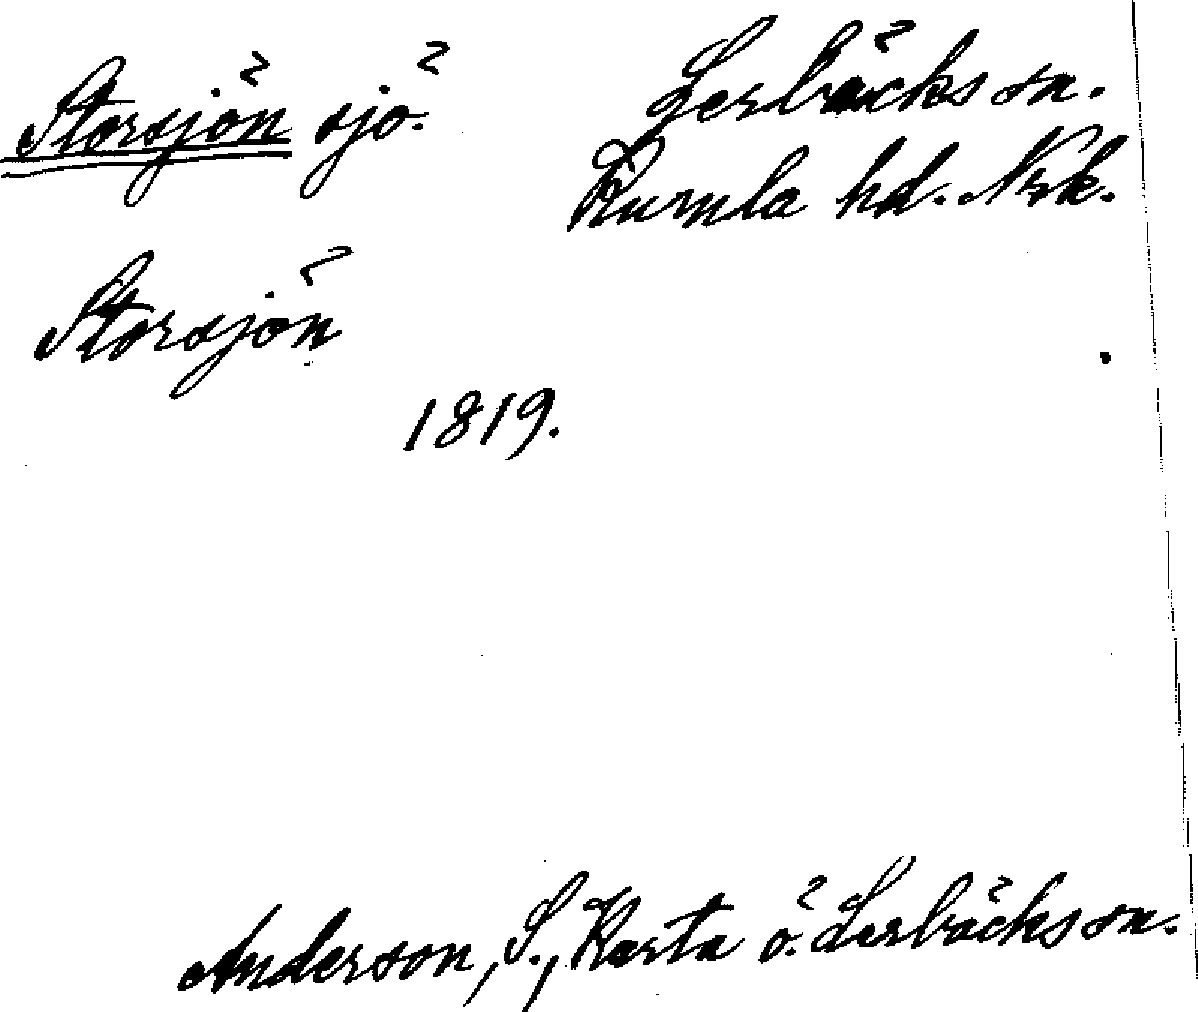 Storsjön sjö.
Lerbäcks sn.
Kumla hd. Nrk.
Storsjön
1819.
Anderson, S., Karta ö. Lerbäcks sn.